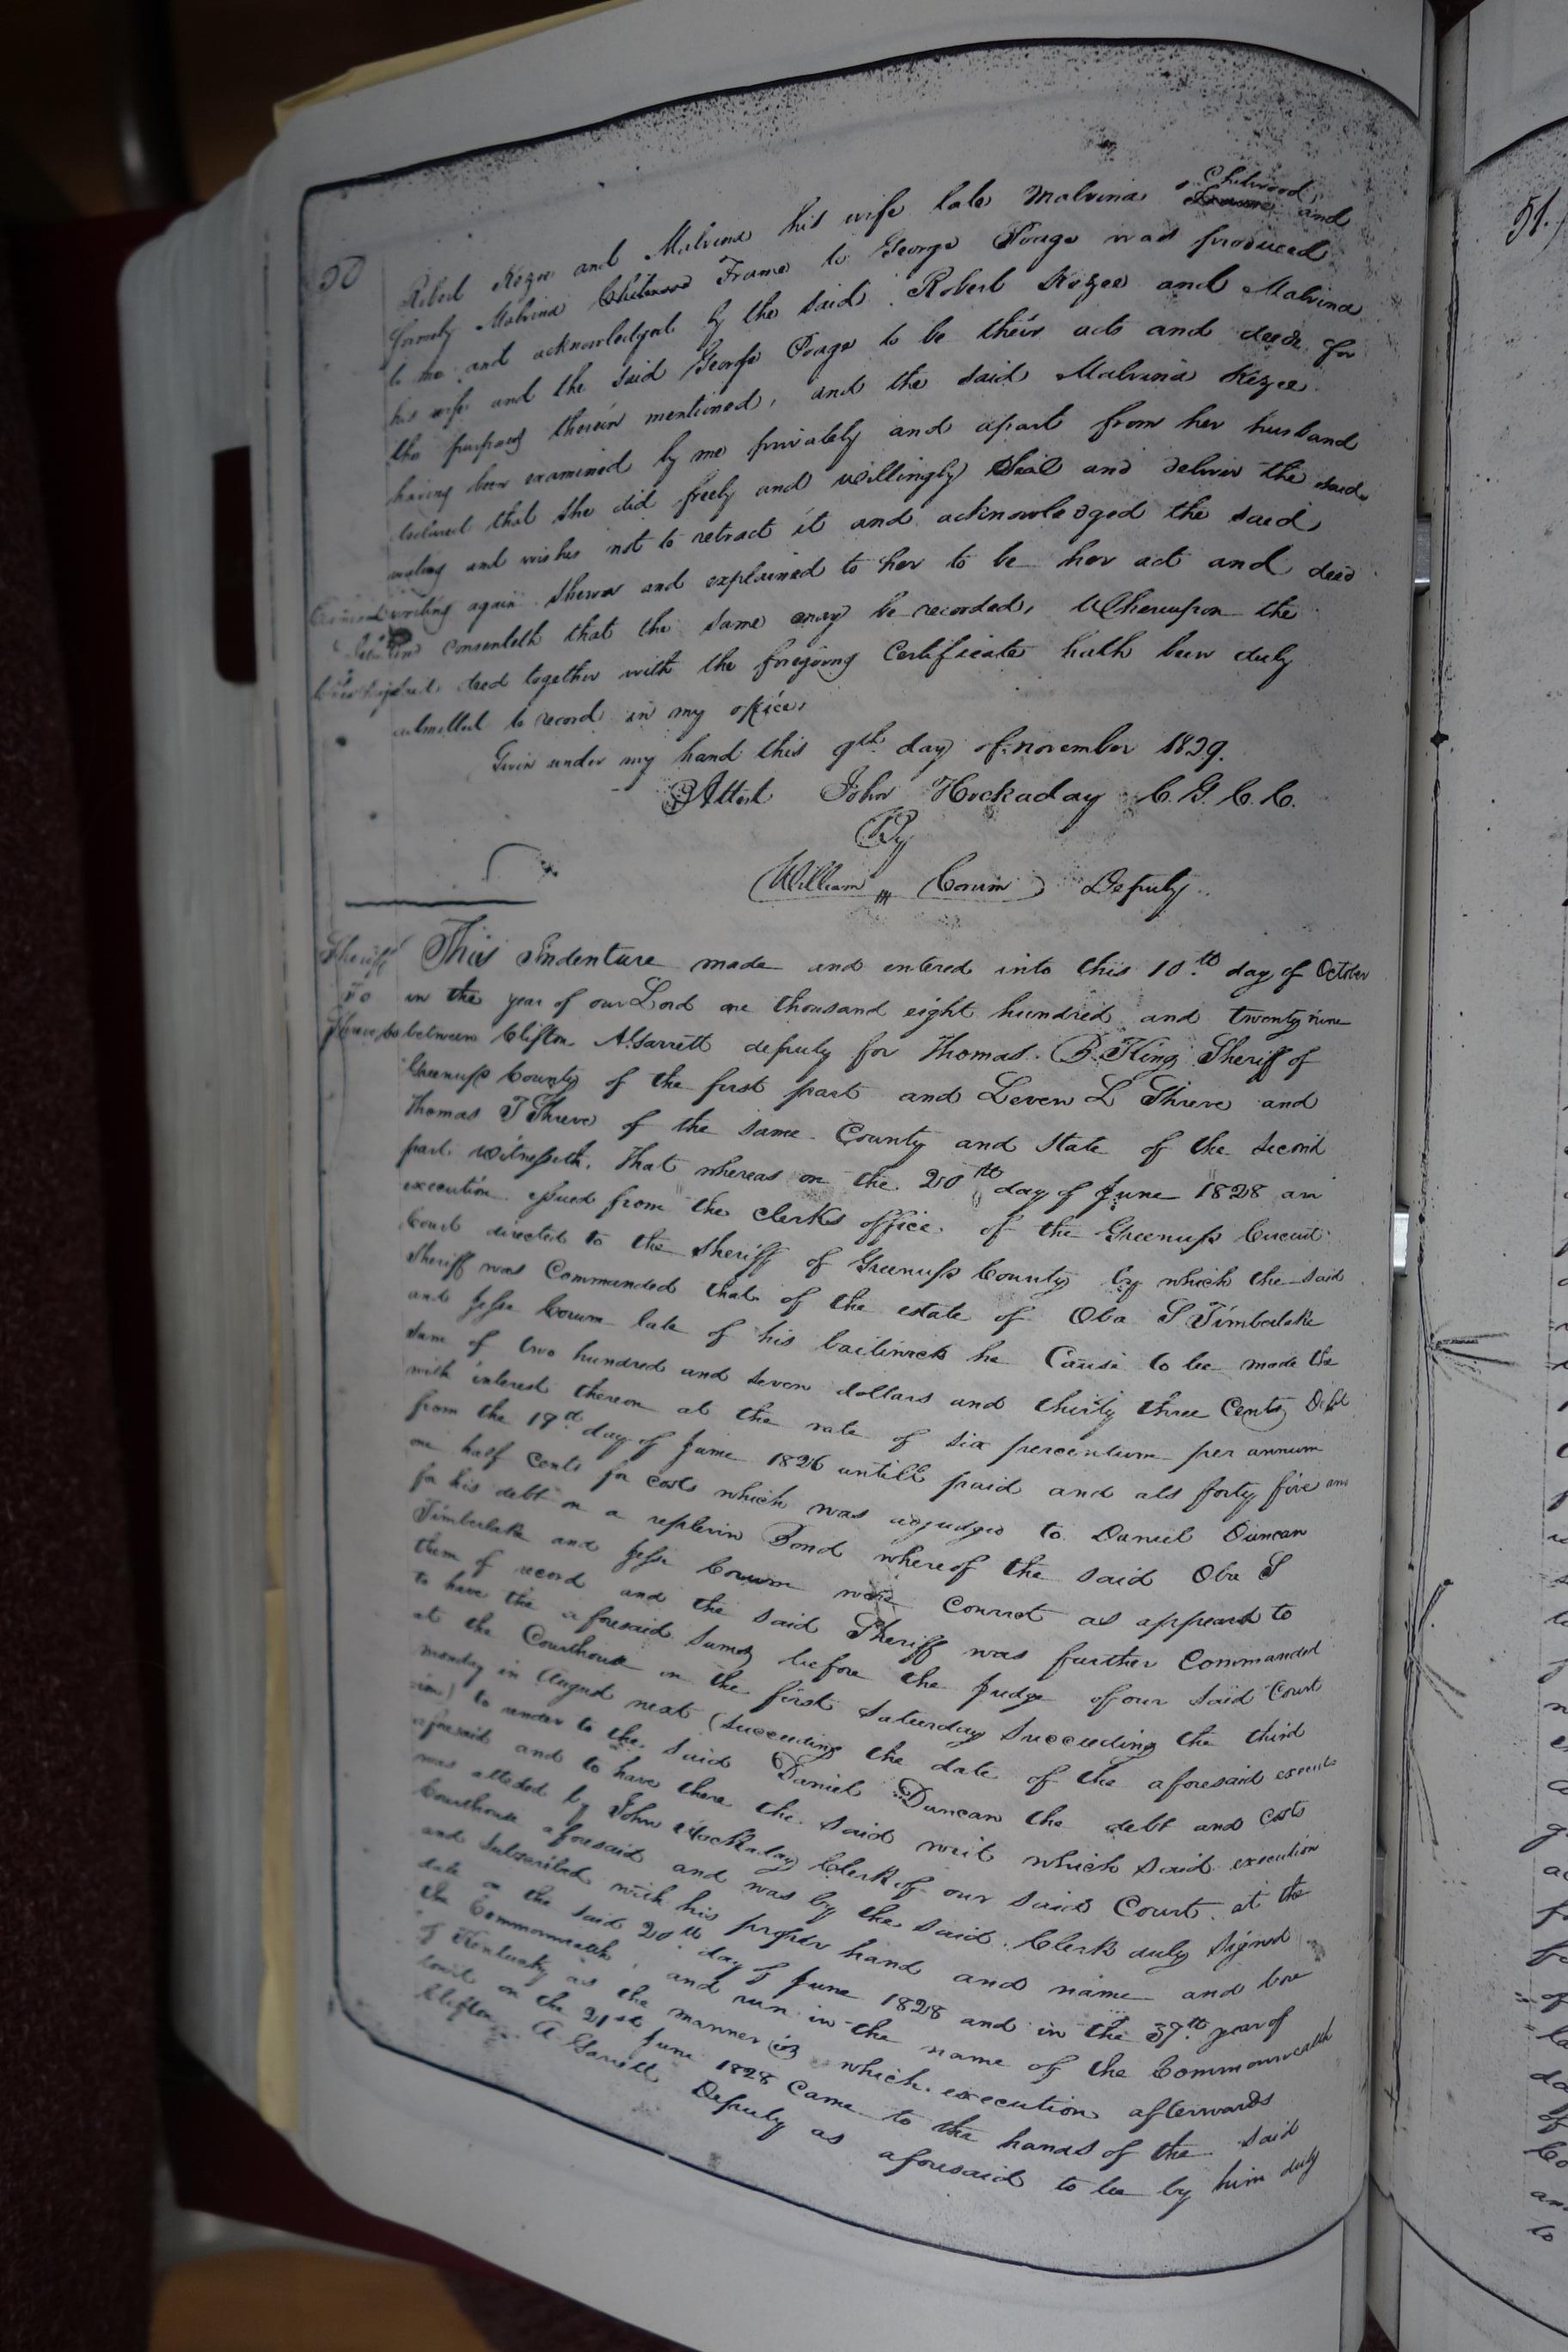 50
Robert Kezee and Malvina his wife late Malvina Chitwood and
formerly Malvina Frame to George Poage was produced
to me and acknowledged by the said Robert Kezee and Malvina
his wife and the said George Poage to be their acts and deeds for
the purposes therein mentioned, and the said Malvina Kezee
having been examined by me privately and apart from her husband
declared that she did freely and willingly Seal and deliver the said
writing and wishes not to retract it and acknowledged the said
writing again shewn and explained to her to be her act and deed
consenteth that the same may be recorded, Whereupon the
deed together with the foregoing Certificate hath been duly
admitted to record in my office,
Given under my hand this 9th day of November 1829.
Attest John Hockaday C. G. C. C.
By
William Corum Deputy.
Sheriff
To
Shreves
This Indenture made and entered into this 10th day of October
in the year of our Lord one thousand eight hundred and twenty nine
between Clifton A Garrett deputy for Thomas B King Sheriff of
Greenup County of the first part and Leven L Shreve and
Thomas T Shreve of the same County and State of the second
part witnesseth, That whereas on the 20th day of June 1828 an
execution issued from the clerks office of the Greenup Circuit
Court directed to the Sheriff of Greenup County by which the said
Sheriff was Commanded that of the estate of Oba S Timberlake
and Jesse Corum late of his bailiwick he Cause to be made the
sum of two hundred and seven dollars and thirty three Cents Debt
with interest thereon at the rate of six percentum per annum
from the 19th day of June 1826 untill paid and als forty five and
one half Cents for costs which was adjudged to Daniel Duncan
for his debt on a replevin Bond whereof the said Oba S
Timberlake and Jesse Corum were Convict as appears to
them of record and the said Sheriff was further Commanded
to have the aforesaid sums before the Judge of our said Court
at the Courthouse on the first Saturday Succeeding the third
monday in August next (succeeding the date of the aforesaid
to render to the said Daniel Duncan the debt and Costs
aforesaid and to have there the said writ which said execution
was attested by John Hockaday Clerk of our said Court at the
Courthouse aforesaid and was by the said Clerk duly signed
and Subscribed with his proper hand and name and bore
date on the said 20th day of June 1828 and in the 37th year of
the Commonwealth, and run in the name of the Commonwealth
of Kentucky as the manner is which execution afterwards
towit on the 21st June 1828 Came to the hands of the said
Clifton A Garrett Deputy as aforesaid to be by him duly
51.